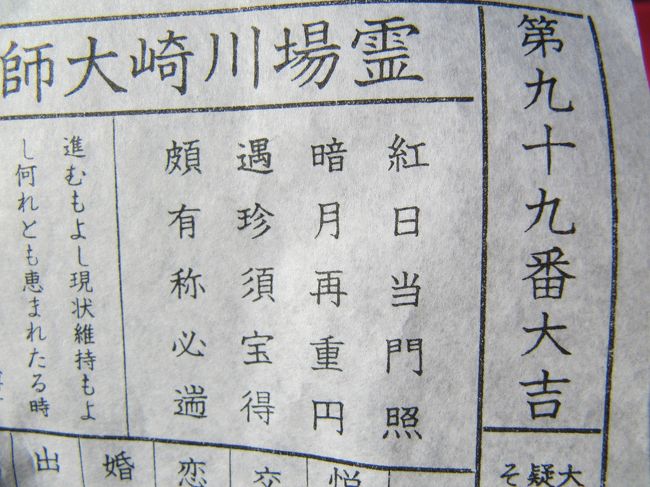 第九十九番大吉
霊場川崎大師
紅日当門照
暗月再重円
遇珍須宝得
頗有称必遄
進むもよし現状維持もよ
し何れとも恵まれたる時
大
疑
そ
交
恋
婚
出